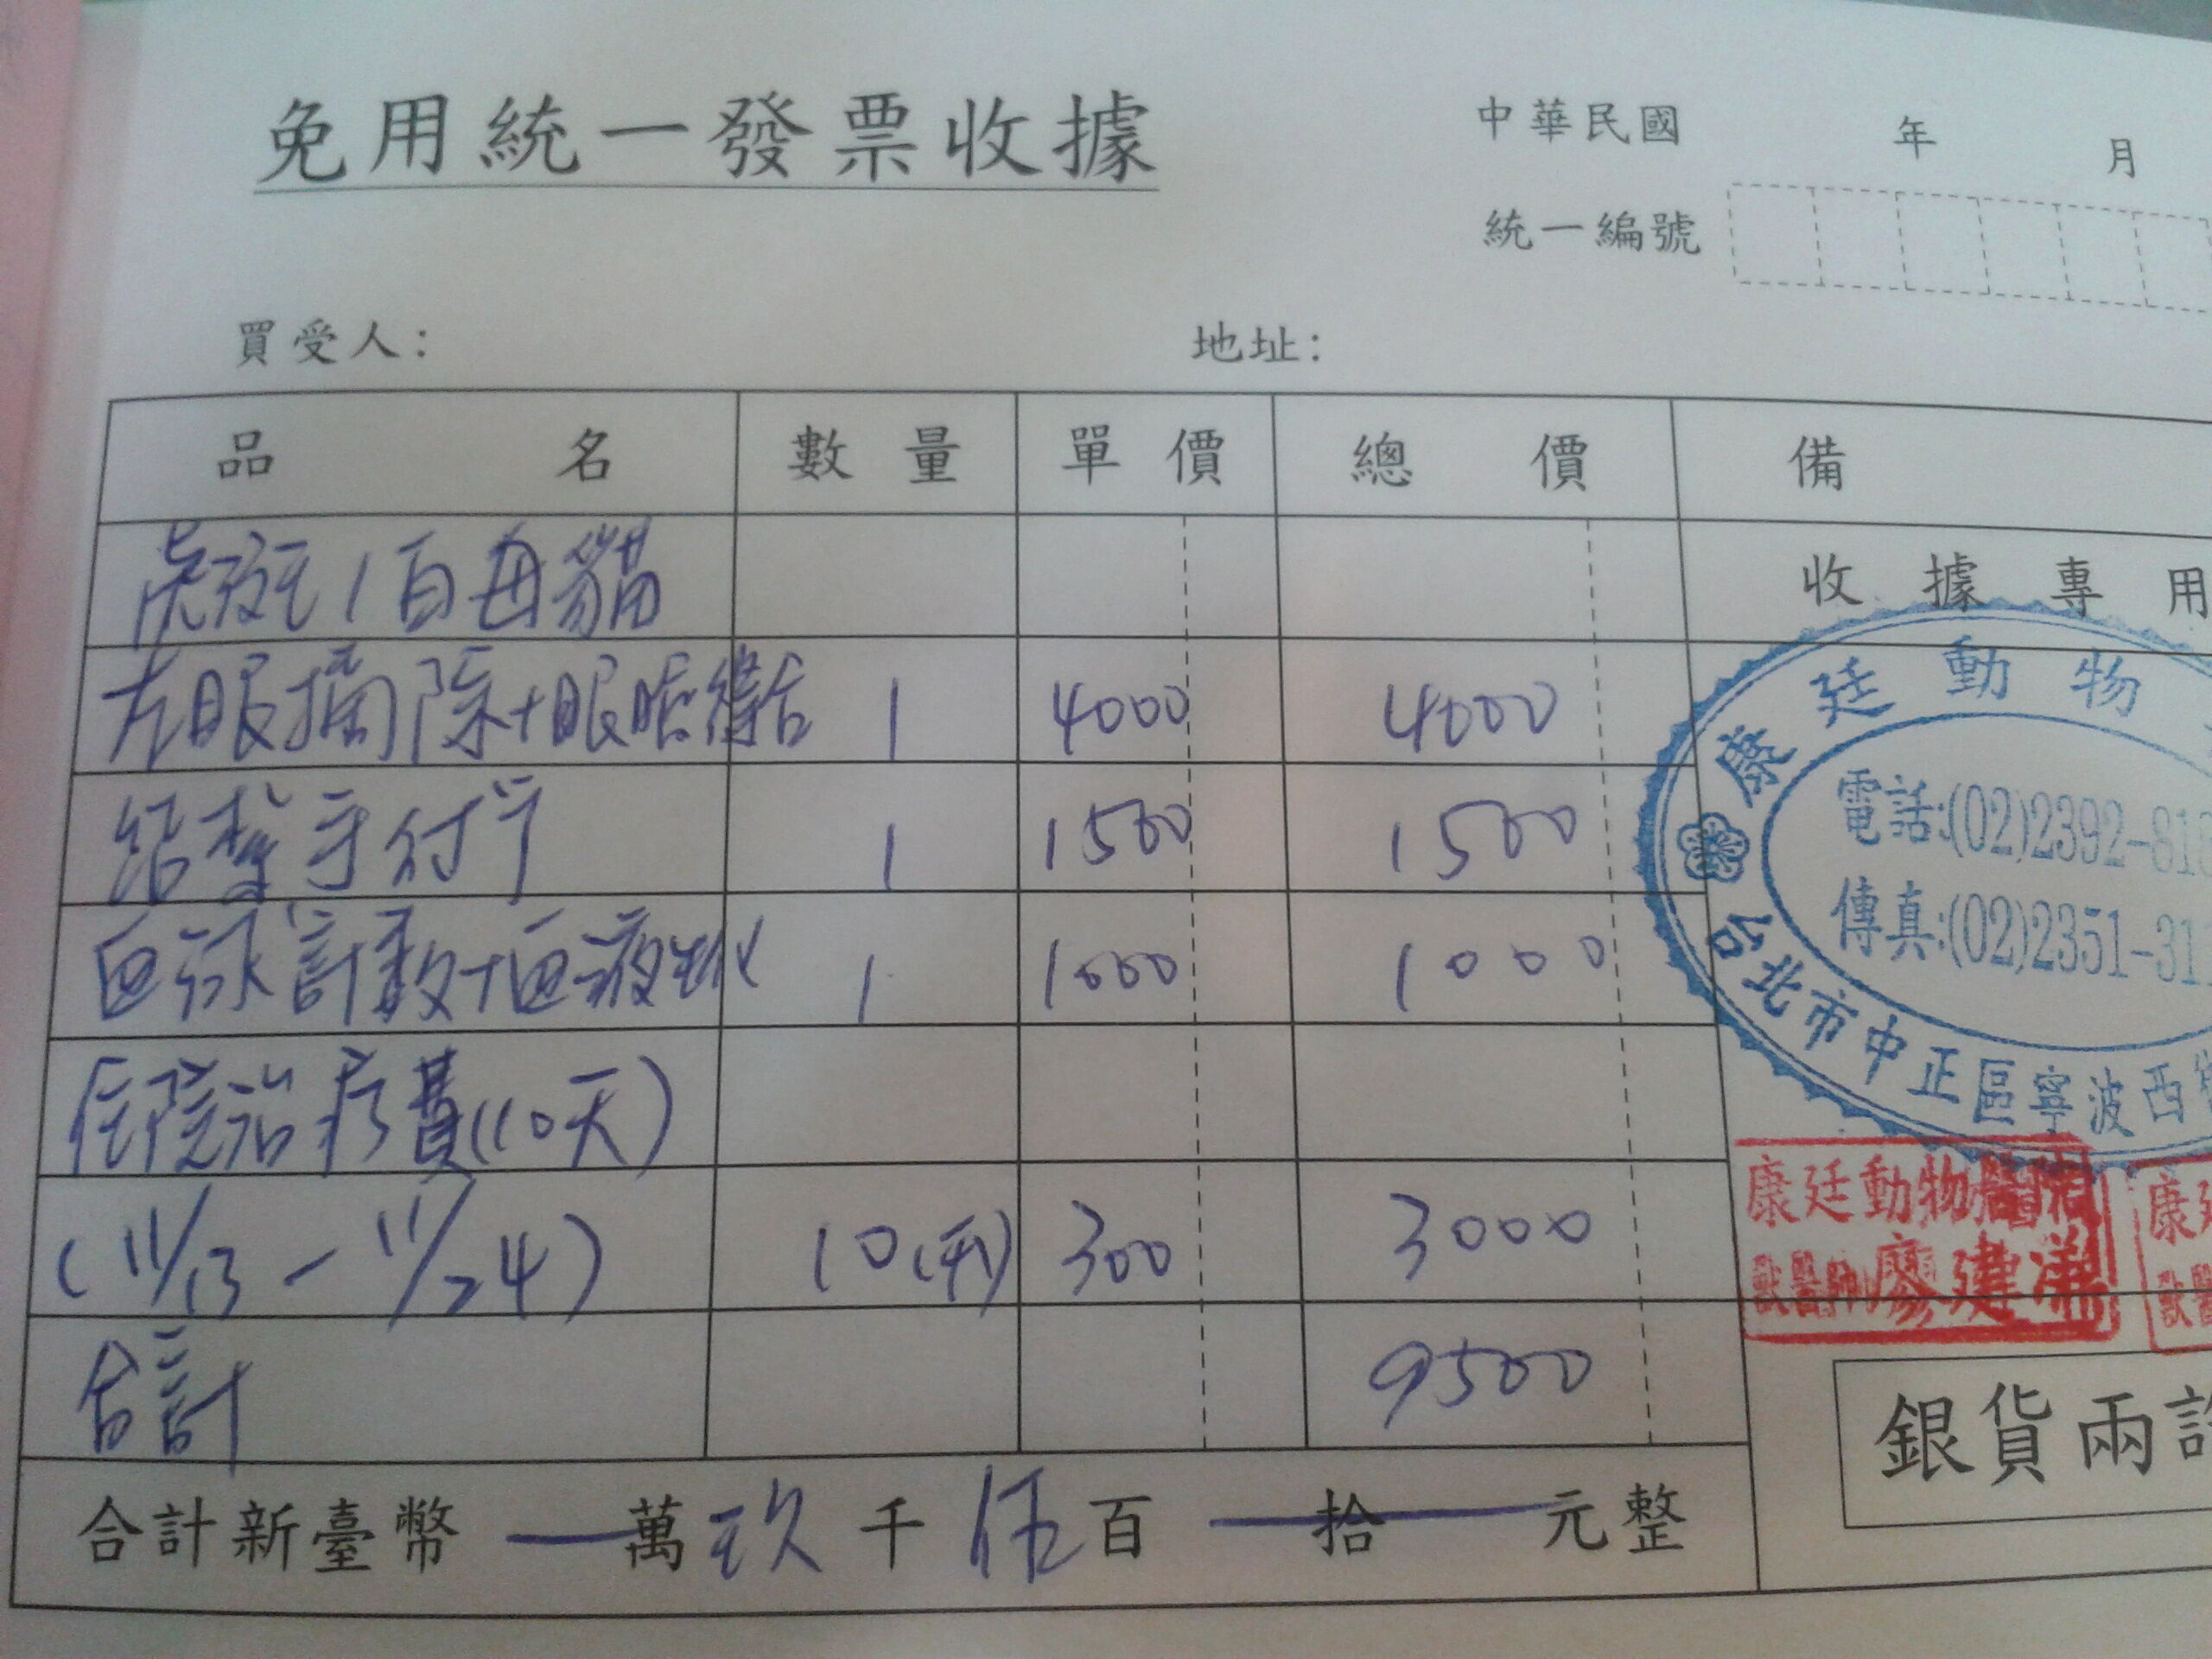 免用統一發票收據
中華民國 年 月
統一編號
買受人: 地址:
品名 數量 單價 總價 備
虎斑/白母貓 收據專用
左眼摘除+眼瞼縫合 1 4000 4000
結紮手術 1 1500 1500
血球計數+血液生化 1 1000 1000
住院治療費(10天)
(11/13-11/24) 10(天) 300 3000
合計 9500
合計新臺幣 一萬玖千伍百一拾一元整
康廷動物
電話:(02)2392-81
傳真:(02)2351-31
台北市中正區寧波西
康廷動物醫院
獸醫師廖建
康
獸醫
銀貨兩